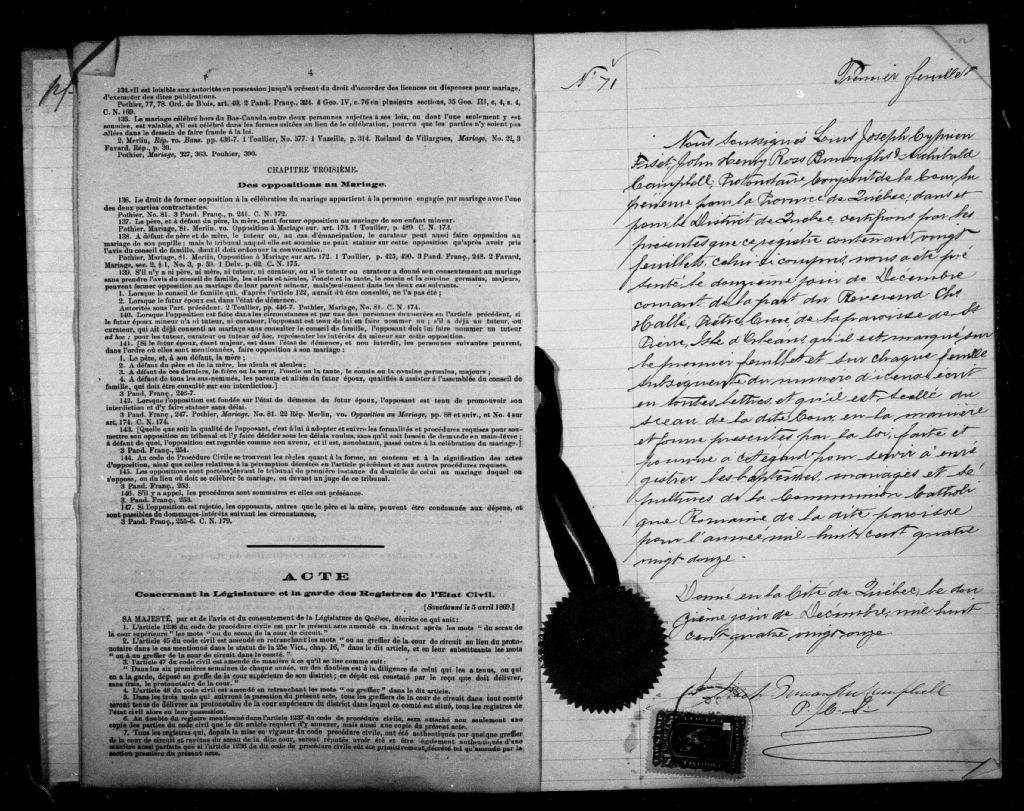 4
134. Il est loisible aux autorités en possession jusqu'à présent du droit d'accorder des licences ou dispenses pour mariage,
d'exempter des dites publications.
Pothier, 77, 78. Ord. de Blois, art. 40, 2 Pand. Franç., 324. 4 Geo. IV, c. 76 en plusieurs sections, 35 Geo. III, c, 4, s. 4,
C. N. 169.
135. Le mariage célébré hors du Bas-Canada entre deux personnes sujettes à ses lois, ou dont l'une seulement y est
soumise, est valable, s'il est célébré dans les formes usitées au lieu de la célébration, pourvu que les parties n'y soient pas
allées dans le dessein de faire fraude à la loi.
2. Merlin, Rép. vo. Bans. pp. 436-7. 1 Toullier, No. 577. 1 Vazeille, p. 314. Rolland de Villargues, Mariage, No. 21, 3
Favard, Rép., p. 30.
Pothier, Mariage, 227, 363. Pouhier, 390.
CHAPITRE TROISIÈME.
Des oppositions au Mariage.
136. Le droit de former opposition à la célébration du mariage appartient à la personne engagée par mariage avec l'une
des deux parties contractantes.
Pothier, No. 81. 3 Pand. Franç., p. 241. C. N. 172.
137. Le père, et à défaut du père, la mère, peut former opposition au mariage de son enfant mineur.
Pothier, Mariage, 81. Merlin, vo. Opposition à Mariage sur. art. 173. 1 Toullier, p. 489. C. N. 173.
138. A défaut de père et de mère, le tuteur ou, au cas d'émancipation, le curateur peut aussi faire opposition au
mariage de son pupille; mais le tribunal auquel elle est soumise ne peut statuer sur cette opposition qu'après avoir pris
l'avis du conseil de famille, dont il doit ordonner la convocation.
Pothier, Mariage, 81. Merlin, Opposition à Mariage sur art. 172. 1 Toullier, p. 425, 490. 3 Pand. Franç., 248. 2 Favard,
Mariage, sec. 2, § 1, No. 3, p. 59. 1 Delv., p. 62. C. N. 175.
139. S'il n'y a ni père, ni mère, ni tuteur, ni curateur, ou si le tuteur ou curateur a donné son consentement au mariage
sans prendre l'avis du conseil de famille, les aïeuls et aïeules, l'oncle et la tante, le cousin et la cousine germains, majeurs,
peuvent former opposition au mariage de leur parent mineur, mais seulement dans les deux cas suivants.
1. Lorsque le conseil de famille, qui, d'après l'article 122, aurait dû être consulté, ne l'a pas été;
2. Lorsque le futur époux est dans l'état de démence.
Autorités sous l'art. précédent. 2 Toullier, pp. 436-7. Pothier, Mariage, No. 81. C. N. 174.
140. Lorsque l'opposition est faite dans les circonstances et par une des personnes énumérées en l'article précédent, si
le futur époux mineur n'a ni tuteur, ni curateur, l'opposant est tenu de lui en faire nommer un; s'il a déjà un tuteur, ou
curateur, qui ait déjà consenti au mariage sans consulter le conseil de famille, l'opposant doit lui faire nommer un tuteur
ad hoc; pour les tuteur, curateur ou tuteur ad hoc, représenter les intérêts du mineur sur cette opposition.
141. [Si le futur époux, étant majeur, est dans l'état de démence, et non interdit, les personnes suivantes peuvent,
dans l'ordre où elles sont mentionnées, faire opposition à son mariage:
1. Le père, et, à son défaut, la mère;
2. A défaut du père et de la mère, les aïeuls et aïeules;
3. A défaut de ces derniers, le frère ou la sœur, l'oncle ou la tante, le cousin ou la cousine germains, majeurs;
4. A défaut de tous les sus-nommés, les parents et alliés du futur époux, qualifiés à assister à l'assemblée du conseil de
famille, qui doit être consulté sur son interdiction.]
3 Pand. Franç., 246-7.
142. Lorsque l'opposition est fondée sur l'état de démence du futur époux, l'opposant est tenu de promouvoir son
interdiction et d'y faire statuer sans délai.
3 Pand. Franç., 247. Pothier, Mariage, No. 81. 22 Rép. Merlin, vo. Opposition au Mariage, pp. 88 et suiv., et No. 4 sur
art. 174. C. N. 174.
143. [Quelque que soit la qualité de l'opposant, c'est à lui à adopter et suivre les formalités et procédures requises pour sou-
mettre son opposition au tribunal et l'y faire décider sous les délais voulus, sans qu'il soit besoin de demande en main-levée;
à défaut de quoi, l'opposition est regardée comme non avenue, et il est, nonobstant, passé outre à la célébration du mariage.]
3 Pand. Franç., 254.
144. Au code de Procédure Civile se trouvent les règles quant à la forme, au contenu et à la signification des actes
d'opposition, ainsi que celles relatives à la péremption décrétée en l'article précédent et aux autres procédures requises.
145. Les oppositions sont portées devant le tribunal de première instance du domicile de celui au mariage duquel on
s'oppose, ou du lieu où doit se célébrer le mariage, ou devant un juge de ce tribunal.
3 Pand. Franç., 253.
146. S'il y a appel, les procédures sont sommaires et elles ont préséance.
3 Pand. Franç., 253.
147. Si l'opposition est rejetée, les opposants, autres que le père et la mère, peuvent être condamnés aux dépens, et
sont passibles de dommages-intérêts suivant les circonstances,
3 Pand. Franç., 255-6. C. N. 179.
ACTE
Concernant la Législature et la garde des Registres de l'Etat Civil.
[Sanctionné le 5 avril 1869.]
SA MAJESTÉ, par et de l'avis et du consentement de la Législature de Québec, décrète ce qui suit:
1. L'article 1236 du code de procédure civile est par le présent acte amendé en insérant après les mots " du sceau de
la cour supérieure " les mots " ou du sceau de la cour de circuit."
2. L'article 45 du code civil est amendé en retranchant les mots " ou au greffier de la cour de circuit au lieu du proto-
notaire dans le cas mentionné dans le statut de la 25e Vict., chap. 16," dans le dit article, et en leur substituant les mots
" ou à un greffier de la cour de circuit dans le comté."
3. l'article 47 du code civil est amendé de manière à ce qu'il se lise comme suit:
" Dans les six premières semaines de chaque année, un des doubles est à la diligence de celui qui les a tenus, ou qui
en a la garde, déposé au greffe de la cour supérieure de son district; ce dépôt est constaté par le reçu que doit délivrer,
sans frais, le protonotaire de la cour."
4. L'article 48 du code civil est amendé en retranchant les mots " ou greffier " dans le dit article.
5. Dans les trois mois qui suivront la passation du présent acte, tous les greffiers de la cour de circuit dans tout comté
seront tenus de délivrer au protonotaire de la cour supérieure du district dans lequel ce comté est situé, tous les registres de
l'état civil alors en leur possession.
6. Au double du registre mentionné dans l'article 1237 du code de procédure civile, sera attaché non seulement une
copie des parties du code civil que le dit article requiert d'y annexer, mais aussi une copie du présent acte.
7. Tous les registres qui, depuis la mise en vigueur du code procédure civile, ont été authentiqués par quelque greffier
de la cour de circuit et revêtus du sceau de la dite cour, seront réputés avoir été et être légalement authentiqués d'une
manière aussi parfaite que si l'article 1236 du dit code de procédure civile eût été primitivement décrété tel qu'amendé par la
section première du présent acte.
No 71
Premier feuillet
Nous soussignés Louis Joseph Cyprien
Fiset, John Henry Ross Burroughs & Archibald
Campbell, Protonotaire Conjoint de la Cour Su
perieure pour la Province de Québec, dans et
pour le District de Québec certifions par les
présentes que ce registre contenant vingt
feuillets, celui-ci compris, nous a été pré
senté le douzième jour de Décembre
courant de la part du Révérend Chs
Hallé, Prêtre, Curé, de la paroisse de St
Pierre, Isle d'Orléans qu'il est marqué sur
le premier feuillet et sur chaque feuille
subsequente du numéro d'icence écrit
en toutes lettres, et qu'il est scellé du
sceau de la dite Cour, en la manière
et forme prescrites par la loi, faite et
pourvue à cet égard pour servir à enré
gistrer les baptêmes, mariages et sé
pultures de la Communion Catholi
que Romaine de la dite paroisse
pour l'année mil huit cent quatre
vingt douze.
Donné en la Cité de Québec, le dou
zième jour de Décembre, mil huit
cent quatre vingt onze
Fiset Burroughs Campbell
P. C. S.